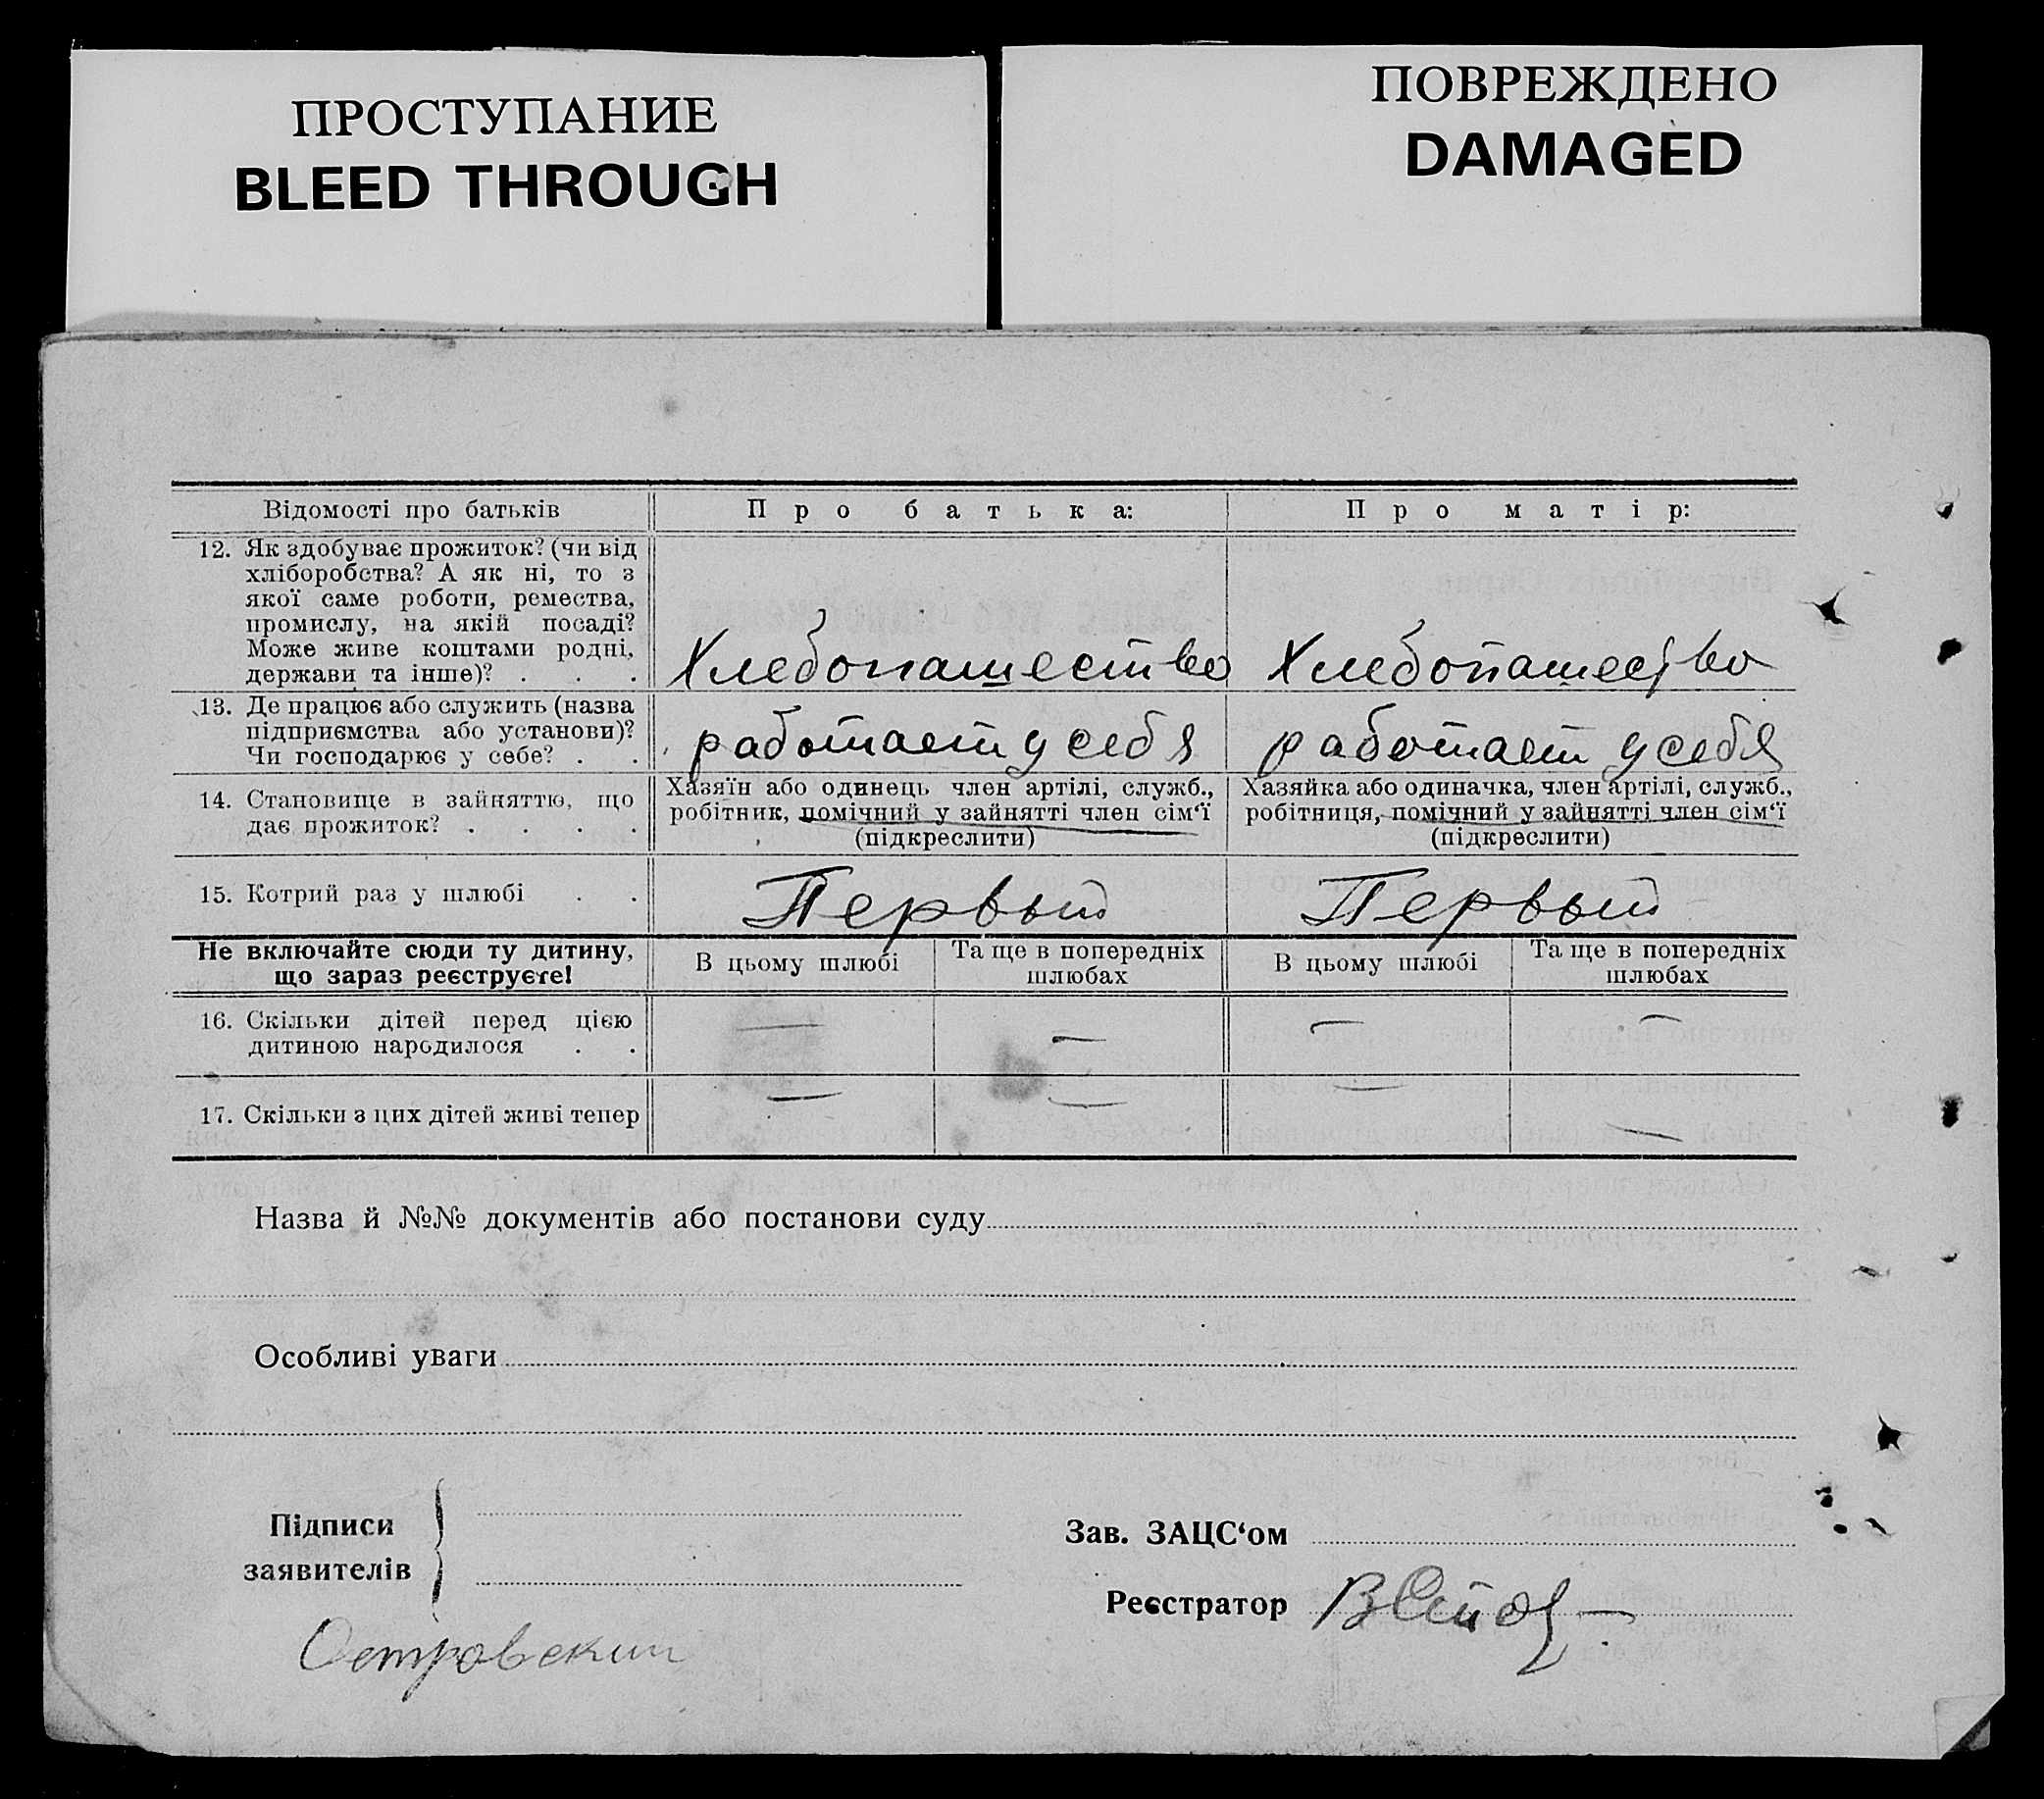 ПРОСТУПАНИЕ
BLEED THROUGH
ПОВРЕЖДЕНО
DAMAGED
Відомості про батьків Про батька: Про матір:
12. Як здобуває прожиток? (чи від
хліборобства? А як ні, то з
якої саме роботи, ремества,
промислу, на якій посаді?
Може живе коштами родні,
держави та інше)? . . .
Хлебопашество Хлебопашество
13. Де працює або служить (назва
підприємства або установи)?
Чи господарює у себе? . .
работает у себя работает у себя
14. Становище в зайняттю, що
дає прожиток? . . . .
Хазяїн або одинець член артілі, служб.,
робітник, помічний у зайнятті член сім‘ї
(підкреслити)
Хазяйка або одиначка, член артілі, служб.,
робітниця, помічний у зайнятті член сім‘ї
(підкреслити)
15. Котрий раз у шлюбі . . Первый Первый
Не включайте сюди ту дитину,
що зараз реєструєте!
В цьому шлюбі
Та ще в попередніх
шлюбах
В цьому шлюбі
Та ще в попередніх
шлюбах
16. Скільки дітей перед цією
дитиною народилося . .
— — — —
17. Скільки з цих дітей живі тепер — — — —
Назва й №№ документів або постанови суду
Особливі уваги
Підписи
заявителів
Островский
Зав. ЗАЦС‘ом
Реєстратор